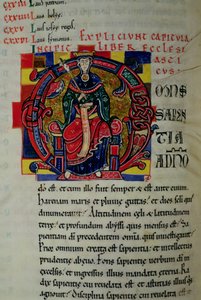 Laus patrum.
Laus symonis. EXPLICIUNT CAPITULA
INCIPIT LIBER ECCLESI
ASTI
CUS
ONIS
SAPIEN
TIA
A DÑO
deo est. et cum illo fuit semper & est ante euum.
Harenam maris et pluuie guttas. et dies seculi quis
dinumerauit? Altitudinem celi & latitudinem
terre. et profundum abyssi quis mensus est? Sa
pientiam dei precedentem omnia quis inuestigauit?
Prior omnium creata est sapientia et intellectus
prudentie ab euo. Fons sapientie uerbum di in
excelsis. et ingressus illius mandata eterna. Ra
dix sapientie cui reuelata est. et astutias illius quis
agnouit? Disciplina sapientie cui reuelata